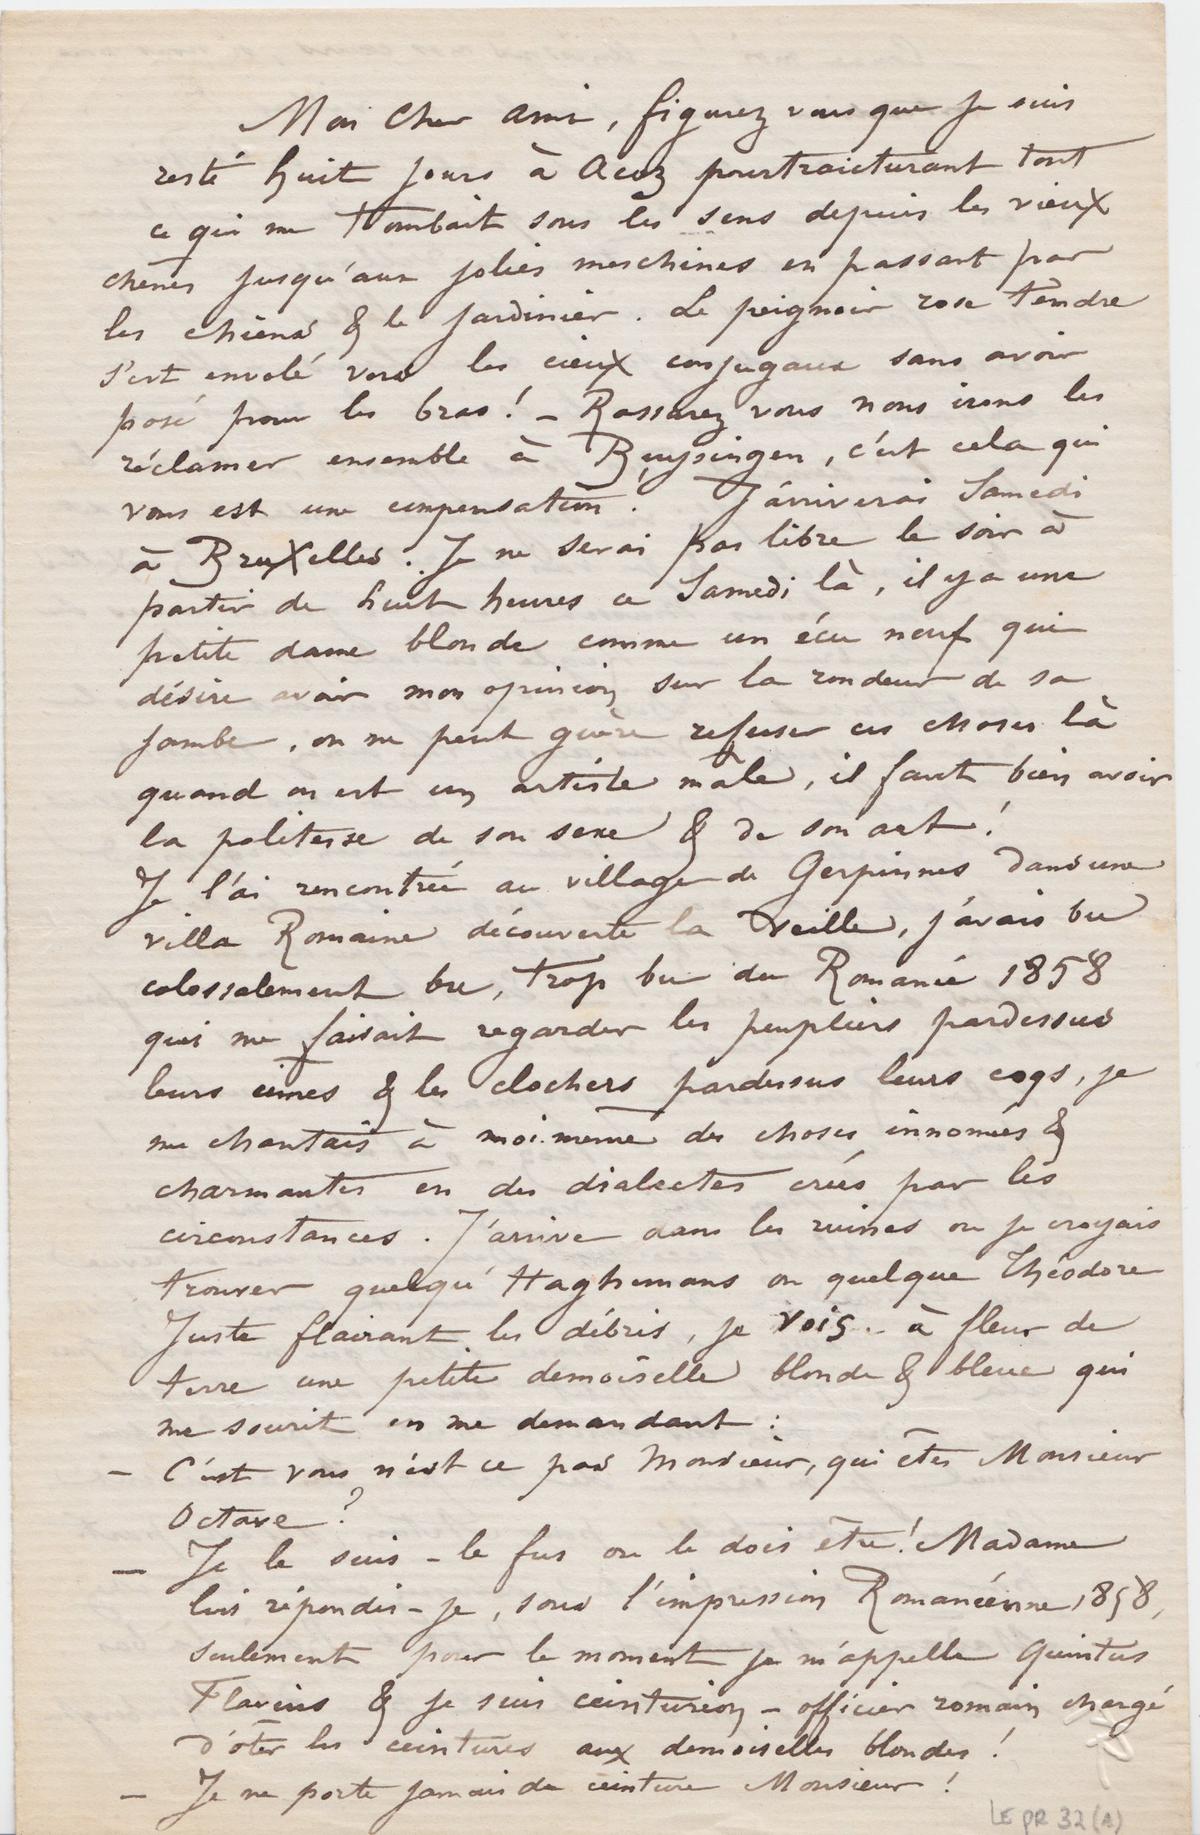 Mon Cher Ami, figurez vous que je suis
resté huit jours à Acoz pourtraicturant tout
ce qui me tombait sous les sens depuis les vieux
chênes jusqu'aux jolies meschines en passant par
les chiens & le jardinier. Le peignoir rose tendre
s'est envolé vers les cieux conjugaux sans avoir
posé pour les bras! – Rassurez vous nous irons les
réclamer ensemble à Buysingen, c'est cela qui
vous est une compensation! J'arriverai Samedi
à Bruxelles. Je ne serai pas libre le soir à
partir de huit heures ce Samedi là, il y a une
petite dame blonde comme un écu neuf qui
désire avoir mon opinion sur la rondeur de sa
jambe, on ne peut guère refuser ces choses là
quand on est un artiste mâle, il faut bien avoir
la politesse de son sexe & de son art!
Je l'ai rencontrée au village de Gerpinnes dans une
villa Romaine découverte la veille, j'avais bu
colossalement bu, trop bu du Romanée 1858
qui me faisait regarder les peupliers pardessus
leurs cimes & les clochers pardessus leurs coqs, je
me chantais à moi-meme des choses innomées &
charmantes en des dialectes créés par les
circonstances. J'arrive dans les ruines ou je croyais
trouver quelqu' Haghemans ou quelque Théodore
Juste flairant les débris, je vois – à fleur de
terre une petite demoiselle blonde & bleue qui
me sourit en me demandant :
– C'est vous n'est ce pas Monsieur, qui êtes Monsieur
Octave?
– Je le suis – le fus ou le dois être! Madame
lui répondis-je, sous l'impression Romanéenne 1858,
seulement pour le moment je m'appelle Quintus
Flavius & je suis ceinturion – officier romain chargé
d'ôter les ceintures aux demoiselles blondes!
– Je ne porte jamais de ceinture Monsieur!
LE PR 32 (A)